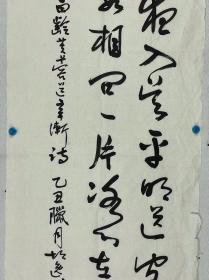 夜入吴平明送客
如相问一片冰心在
昌龄芙蓉送辛渐诗 乙丑腊月